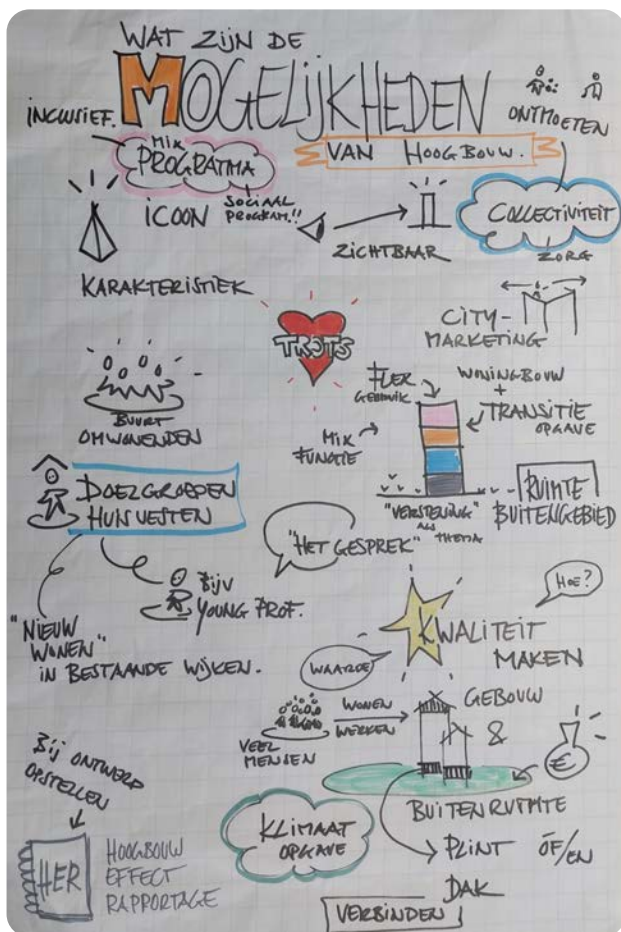 WAT ZIJN DE
MOGELIJKHEDEN
VAN HOOGBOUW.
INCLUSIEF.
MIX
PROGRAMMA
SOCIAAL
PROGRAM.!!
ICOON
KARAKTERISTIEK
ZICHTBAAR
ONTMOETEN
COLLECTIVITEIT
ZORG
CITY-
MARKETING
TROTS
BUURT
OMWONENDEN
FLEX
GEBRUIK
MIX
FUNCTIE
WONINGBOUW
+
TRANSITIE
OPGAVE
"VERSTENING"
ALS
THEMA
RUIMTE
BUITENGEBIED
DOELGROEPEN
HUISVESTEN
"HET GESPREK"
BIJV
YOUNG PROF.
"NIEUW
WONEN"
IN BESTAANDE WIJKEN.
HOE?
KWALITEIT
MAKEN
WAARDE
VEEL
MENSEN
WONEN
WERKEN
GEBOUW
&
€
BUITENRUIMTE
PLINT ÓF/EN
DAK
VERBINDEN
KLIMAAT
OPGAVE
BIJ ONTWERP
OPSTELLEN
HER
HOOGBOUW
EFFECT
RAPPORTAGE